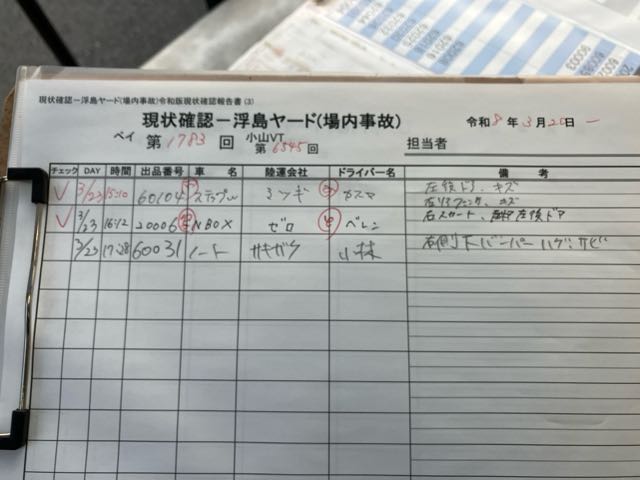 現状確認－浮島ヤード(場内事故)令和版現状確認報告書(3)
現状確認－浮島ヤード(場内事故)
令和 8 年 3 月 20 日
ベイ 第 1783 回 小山VT 第 6545 回
担当者
チェック DAY 時間 出品番号 車 名 陸運会社 ドライバー名 備 考
3/23 15:10 60104 ステップW ミツギ カスマ 左後ドア、キズ
左リアフェンダ、キズ
3/23 16:12 20006 NBOX ゼロ ベレン 右スカート、左後ドア
3/23 17:28 60031 ノート サキガケ 小林 右側下バーパー ハゲ、サビ